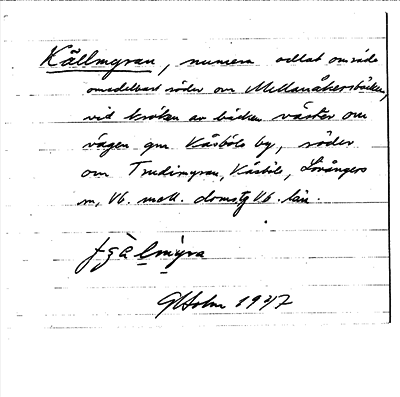 Källmyran, numera odlat område
omedelbart söder om Mellanåkersbäcken,
vid kröken av bäcken väster om
vägen gm Kåsböle by, söder
om Trudimyran, Kåsböle, Lövångers
sn, Vb. mell. domstg Vb. län.
GHolm 1937